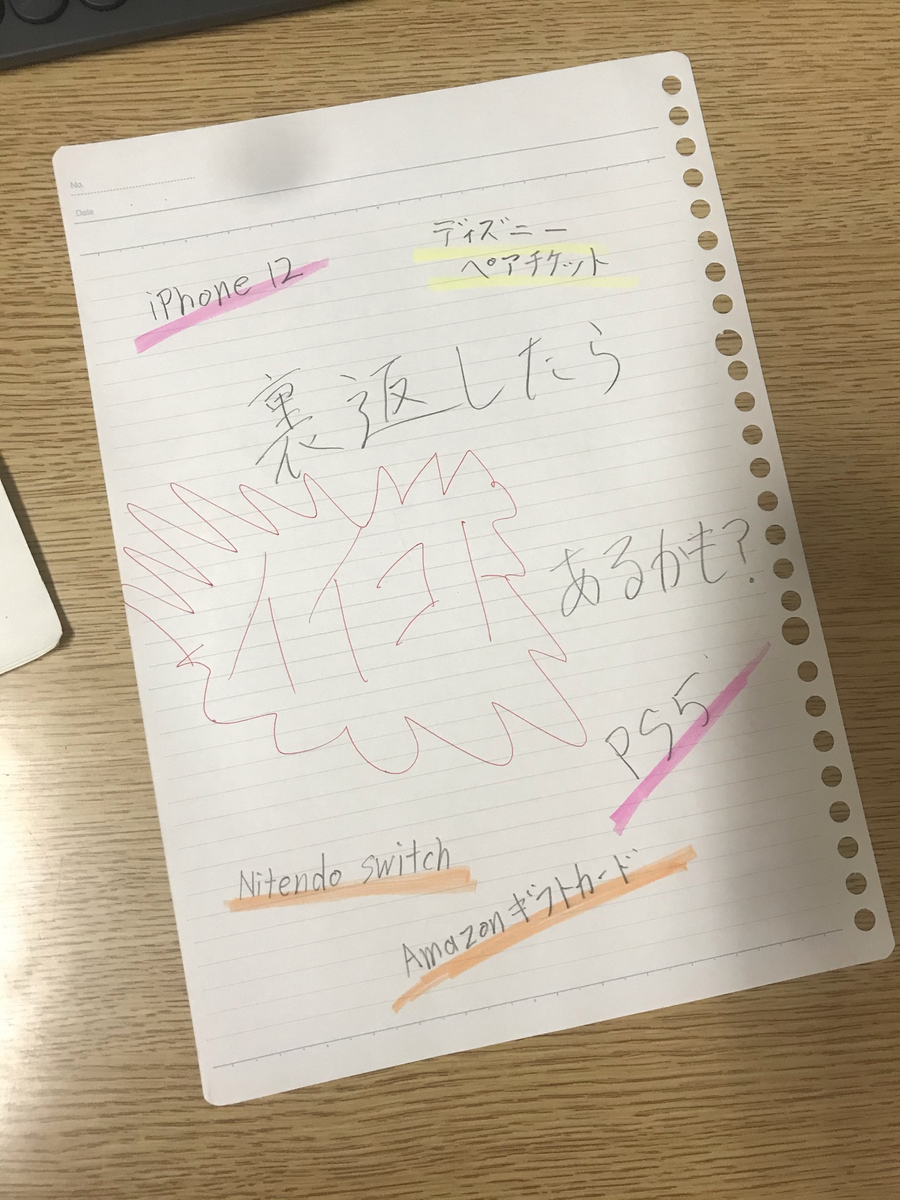 No.
Date
iPhone 12
ディズニー
ペアチケット
裏返したら
イイコト
あるかも?
PS5
Nitendo switch
Amazonギフトカード